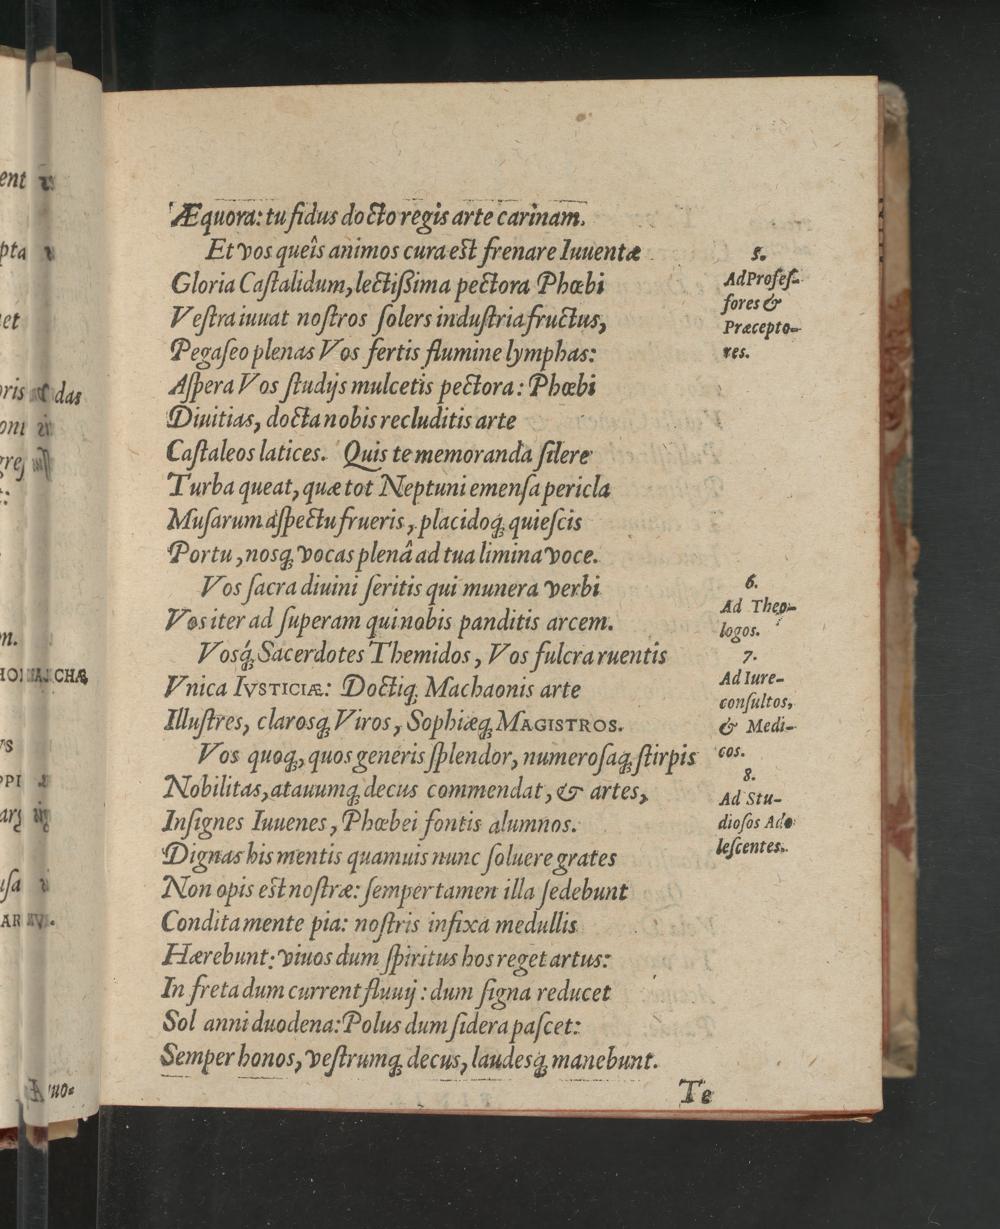 Æquora: tu fidus docto regis arte carinam.
Et vos queîs animos cura est frenare Iuuentæ
5.
Gloria Castalidum, lectißima pectora Phœbi
Ad Profeſ-
Veſtra iuuat noſtros ſolers induſtria fructus,
fores &
Pegaſeo plenas Vos fertis flumine lymphas:
Præcepto-
res.
Aſpera Vos ſtudijs mulcetis pectora: Phœbi
Diuitias, docta nobis recluditis arte
Caſtaleos latices. Quis te memoranda ſilere
Turba queat, quæ tot Neptuni emenſa pericla
Muſarum aſpectu frueris, placidoq́; quieſcis
Portu, nosq́; vocas plenâ ad tua limina voce.
Vos ſacra diuini ſeritis qui munera verbi
6.
Ad Theo-
Vos iter ad ſuperam qui nobis panditis arcem.
logos.
Vosq́; Sacerdotes Themidos, Vos fulcra ruentis
7.
Ad Iure-
Vnica IVSTICIÆ: Doctiq́; Machaonis arte
conſultos,
Illuſtres, clarosq́; Viros, Sophiæq́; MAGISTROS.
& Medi-
Vos quoq́;, quos generis ſplendor, numeroſaq́; ſtirpis
cos.
8.
Nobilitas, atauumq́; decus commendat, & artes,
Ad Stu-
Inſignes Iuuenes, Phœbei fontis alumnos.
dioſos Ado
leſcentes.
Dignas his mentis quamuis nunc ſoluere grates
Non opis est noſtræ: ſemper tamen illa ſedebunt
Condita mente pia: noſtris infixa medullis
Hærebunt: viuos dum ſpiritus hos reget artus:
In freta dum current fluuij: dum ſigna reducet
Sol anni duodena: Polus dum ſidera paſcet:
Semper honos, veſtrumq́; decus, laudesq́; manebunt.
Te